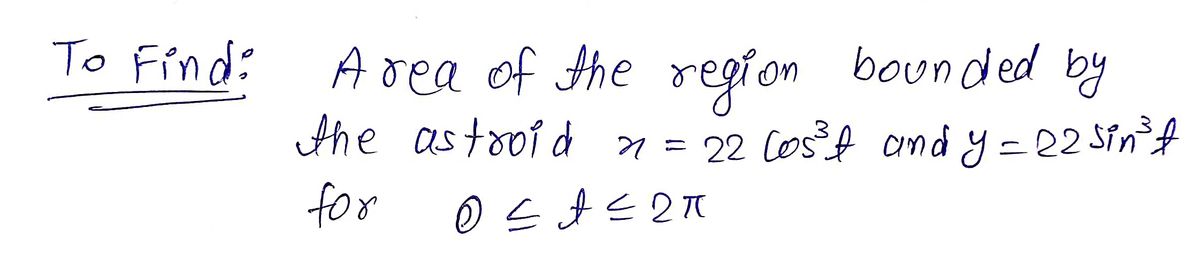 To Find: Area of the region bounded by
the astroid x = 22 Cos³t and y = 22 Sin³t
for 0 ≤ t ≤ 2π